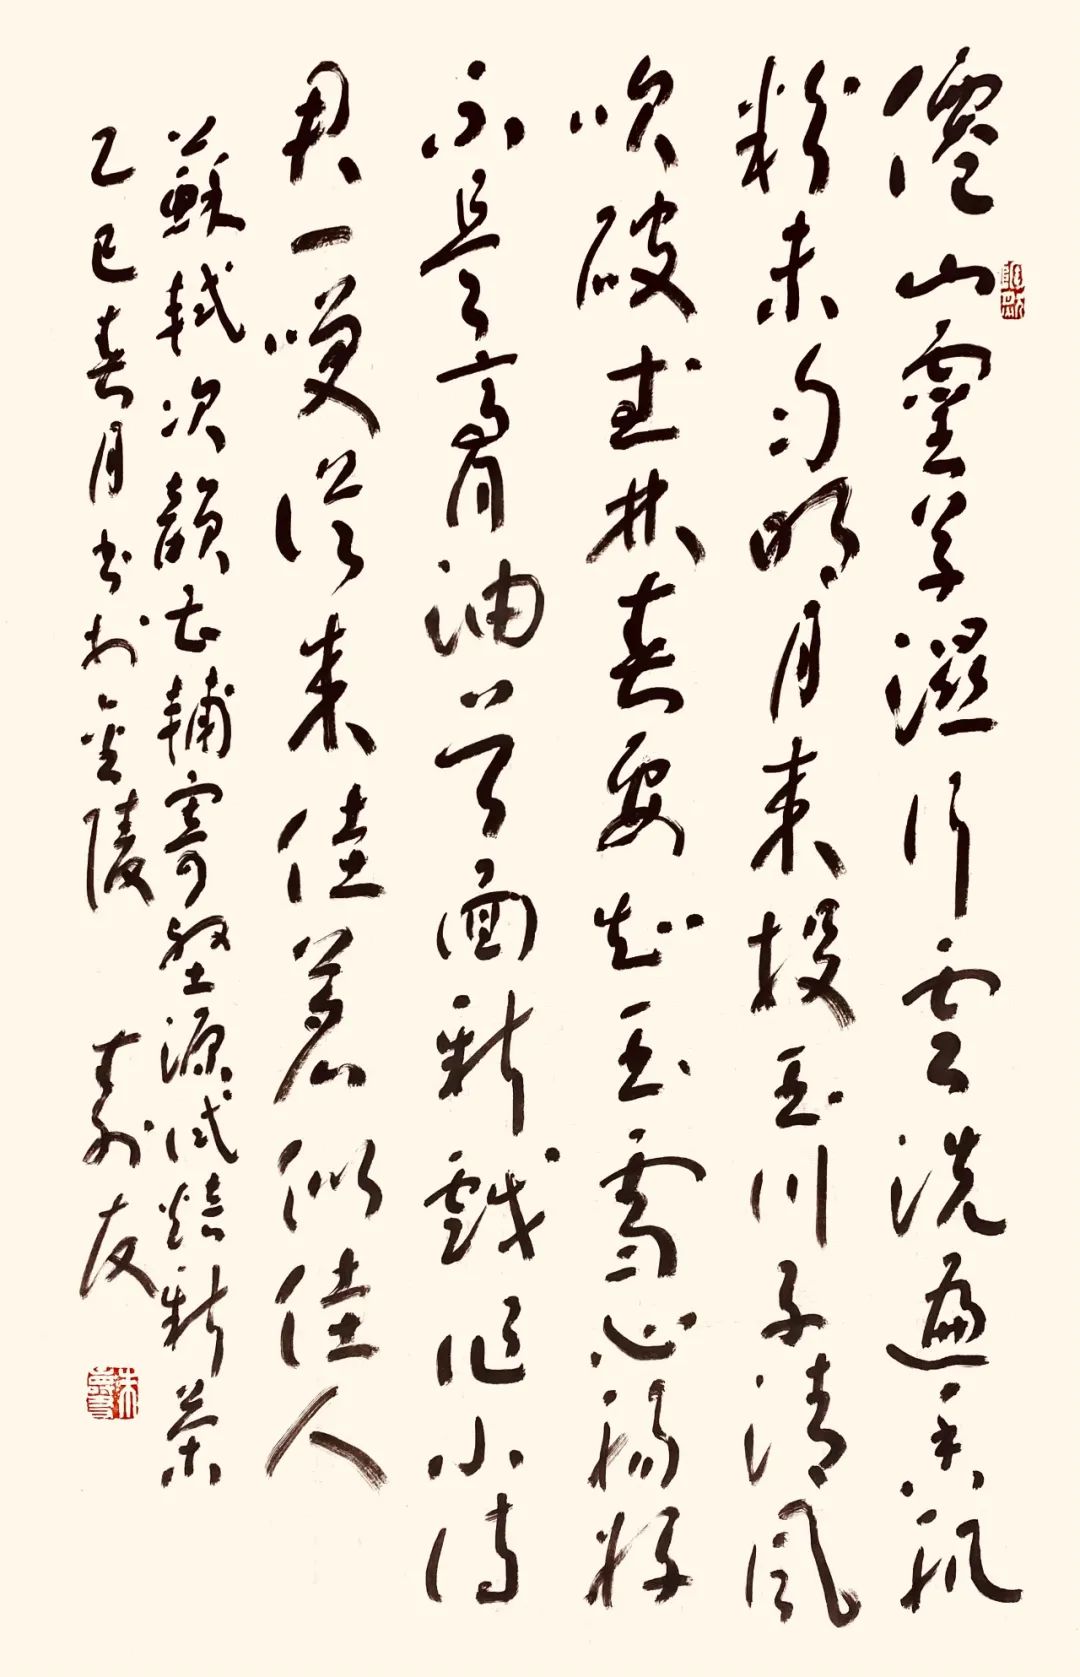 僊山靈草濕行雲洗遍香肌
粉未勻明月來投玉川子清風
吹破武林春要知玉雪心腸好
不是膏油首面新戲作小詩
君一笑從來佳茗似佳人
蘇軾次韻曹輔寄壑源試焙新茶
乙巳春月書於金陵 壽友